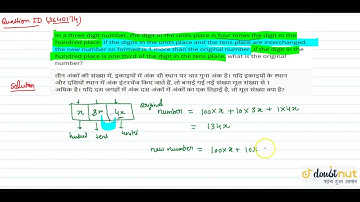 Question ID (3640174)
In a three digit number, the digit in the units place is four times the digit in the
hundred place. If the digits in the units place and the tens place are interchanged,
the new number so formed is 1 more than the original number. If the digit in the
hundred place is one third of the digit in the tens place, what is the original
number?
Solution
तीन अंकों की संख्या में, इकाइयों में अंक सौ स्थान पर चार गुना अंक है। यदि इकाइयों के स्थान
और दसियों स्थान में अंक इंटरचेंज किए जाते हैं, तो बनाई गई नई संख्या मूल संख्या से 1
अधिक है। यदि दस जगहों में अंक दस अंकों में अंकों का एक तिहाई है, तो मूल संख्या क्या है?
original
x 3x 4x
number = 100×x + 10×3x + 1×4x
= 134x
new number = 100×x + 10×
doubtnut